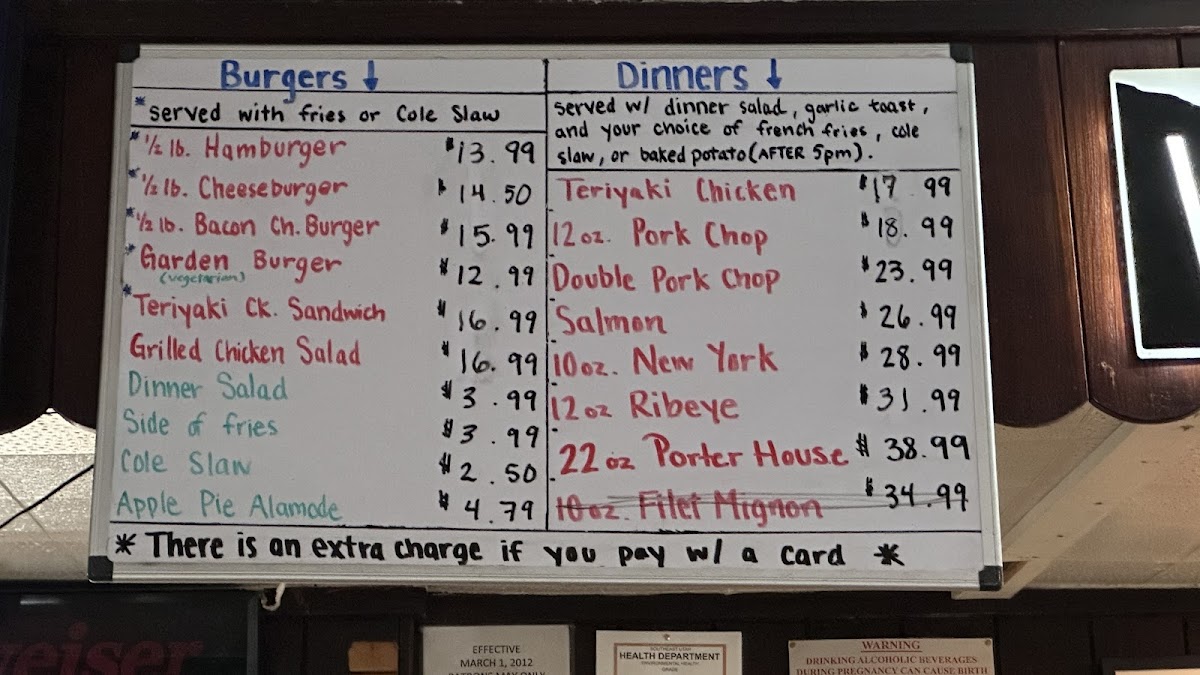 Burgers ↓
*served with fries or Cole Slaw
*1/2 lb. Hamburger $13.99
*1/2 lb. Cheeseburger $14.50
*1/2 lb. Bacon Ch. Burger $15.99
*Garden Burger $12.99
(vegetarian)
*Teriyaki Ck. Sandwich $16.99
Grilled Chicken Salad $16.99
Dinner Salad $3.99
Side of fries $3.99
Cole Slaw $2.50
Apple Pie Alamode $4.79
Dinners ↓
served w/ dinner salad, garlic toast,
and your choice of french fries, cole
slaw, or baked potato (AFTER 5pm).
Teriyaki Chicken $17.99
12oz. Pork Chop $18.99
Double Pork Chop $23.99
Salmon $26.99
10oz. New York $28.99
12oz Ribeye $31.99
22oz Porter House $38.99
10oz. Filet Mignon $34.99
* There is an extra charge if you pay w/ a card *
weiser
EFFECTIVE
MARCH 1, 2012
PATRONS MAY ONLY
SOUTHEAST UTAH
HEALTH DEPARTMENT
ENVIRONMENTAL HEALTH
GRADE
WARNING
DRINKING ALCOHOLIC BEVERAGES
DURING PREGNANCY CAN CAUSE BIRTH